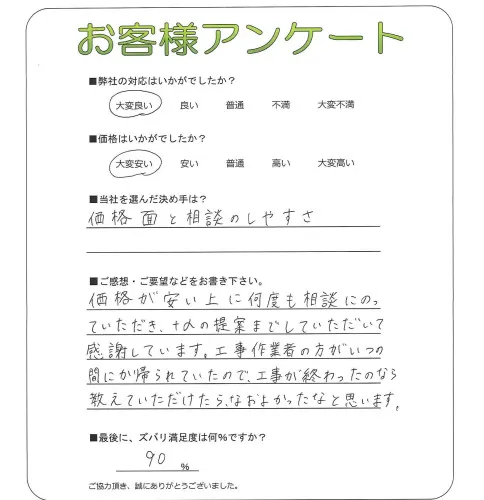 お客様アンケート
■弊社の対応はいかがでしたか？
大変良い 良い 普通 不満 大変不満
■価格はいかがでしたか？
大変安い 安い 普通 高い 大変高い
■当社を選んだ決め手は？
価格面と相談のしやすさ
■ご感想・ご要望などをお書き下さい。
価格が安い上に何度も相談にのっ
ていただき、+αの提案までしていただいて
感謝しています。工事作業者の方がいつの
間にか帰られていたので、工事が終わったのなら
教えていただけたら、なおよかったなと思います。
■最後に、ズバリ満足度は何%ですか？
90 %
ご協力頂き、誠にありがとうございました。